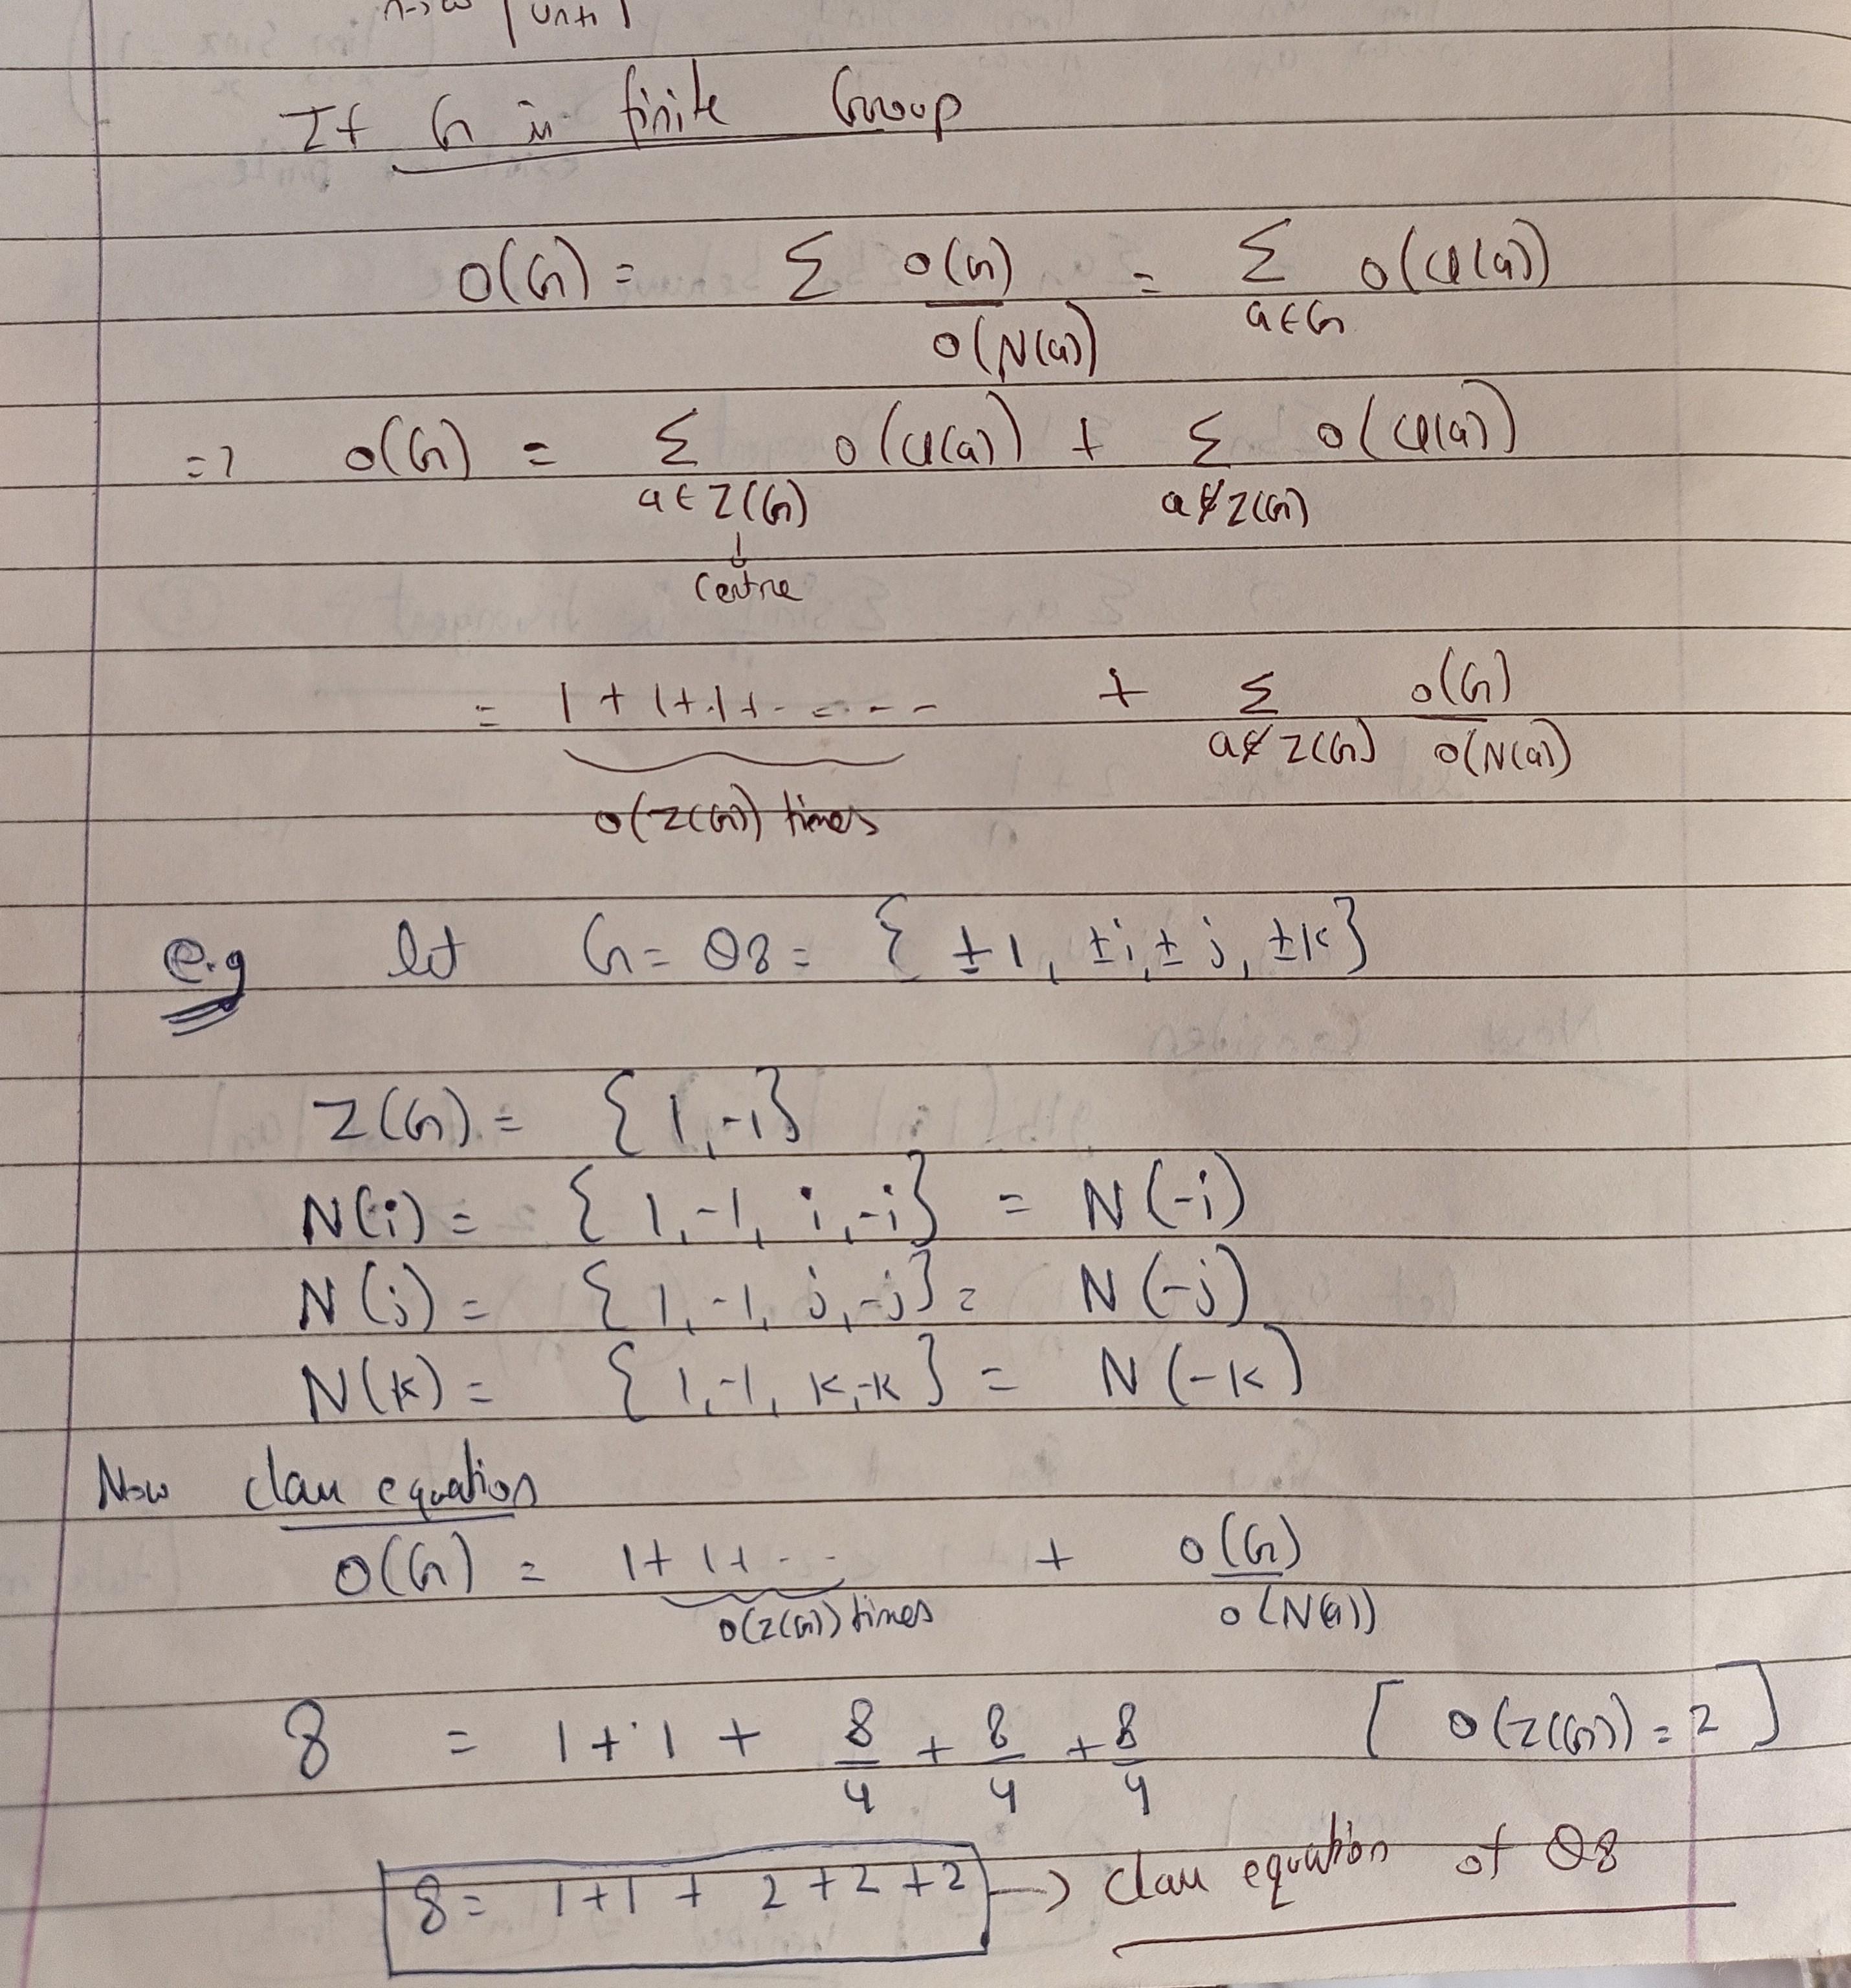 n→∞ | Un+1 |
If G is finite Group
O(G) = Σ O(G)/O(N(a)) = Σ a∈G O(Cl(a))
=> O(G) = Σ a∈Z(G) O(Cl(a)) + Σ a∉Z(G) O(Cl(a))
↓
Centre
= 1 + 1+1+------ + Σ a∉Z(G) O(G)/O(N(a))
O(Z(G)) times
e.g let G = Q8 = { ±1, ±i, ±j, ±k}
Z(G) = { 1, -1}
N(i) = { 1, -1, i, -i} = N(-i)
N(j) = { 1, -1, j, -j} = N(-j)
N(k) = { 1, -1, k, -k} = N(-k)
Now class equation
O(G) = 1+ 1+ --- + O(G)/O(N(a))
O(Z(G)) times
8 = 1 + 1 + 8/4 + 8/4 + 8/4 [ O(Z(G)) = 2 ]
8 = 1+1 + 2+2+2 → class equation of Q8